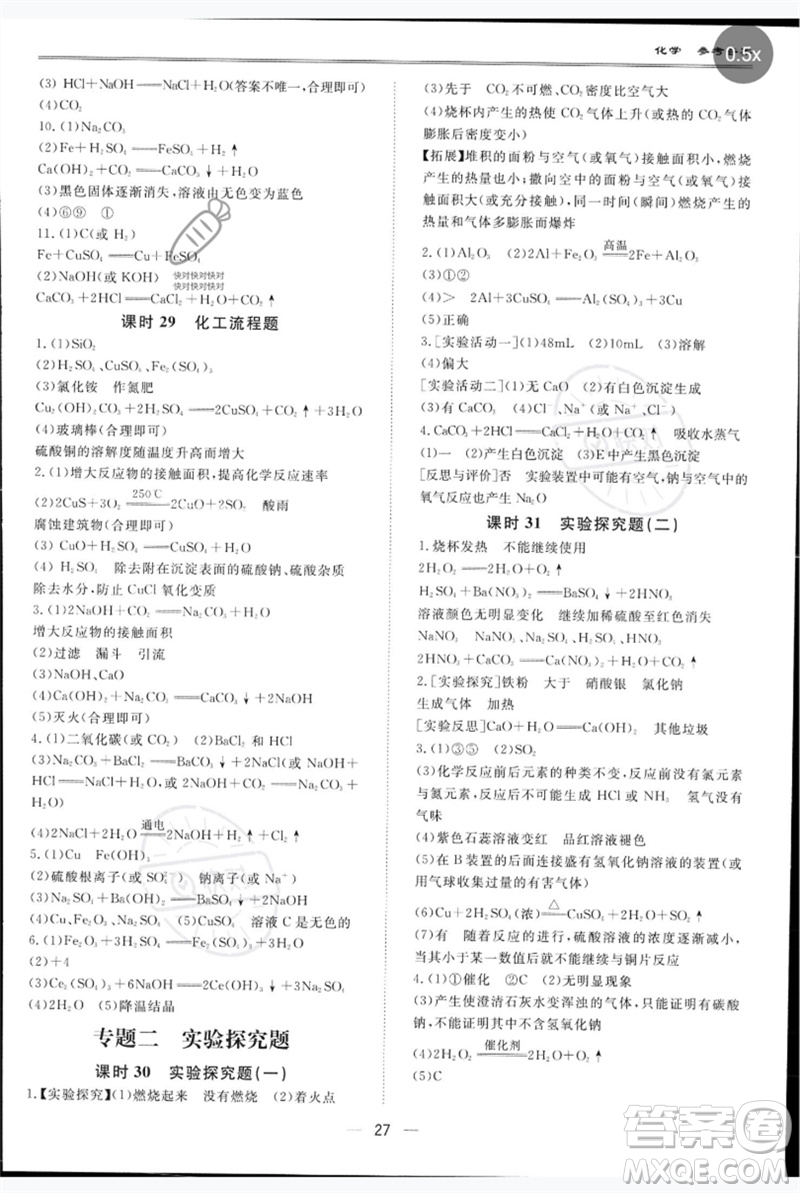 化学 参考
0.5x
(3) HCl+NaOH══NaCl+H₂O(答案不唯一,合理即可)
(4)CO₂
10.(1)Na₂CO₃
(2)Fe+H₂SO₄══FeSO₄+H₂↑
Ca(OH)₂+Na₂CO₃══CaCO₃↓+2NaOH
(3)黑色固体逐渐消失,溶液由无色变为蓝色
(4)⑥⑨ ①
11.(1)C(或 H₂)
Fe+CuSO₄══Cu+FeSO₄
(2)NaOH(或 KOH)
快对快对快对
快对快对快对
CaCO₃+2HCl══CaCl₂+H₂O+CO₂↑
课时 29 化工流程题
1.(1)SiO₂
(2)H₂SO₄、CuSO₄、Fe₂(SO₄)₃
(3)氯化铵 作氮肥
Cu₂(OH)₂CO₃+2H₂SO₄══2CuSO₄+CO₂↑+3H₂O
(4)玻璃棒(合理即可)
硫酸铜的溶解度随温度升高而增大
2.(1)增大反应物的接触面积,提高化学反应速率
(2)2CuS+3O₂ 250℃══2CuO+2SO₂ 酸雨
腐蚀建筑物(合理即可)
(3) H₂SO₄+CuO══CuSO₄+H₂O
(4) H₂SO₄ 洗去附着在沉淀表面的硫酸钠、硫酸铵
除去水分,防止 CuCl 氧化变质
3.(1)2NaOH+CO₂══Na₂CO₃+H₂O
增大反应物的接触面积
(2)过滤 漏斗 引流
(3)NaOH、CaO
(4)Ca(OH)₂+Na₂CO₃══CaCO₃↓+2NaOH
(5)灭火(合理即可)
4.(1)二氧化碳(或 CO₂) (2)BaCl₂ 和 HCl
(3)Na₂CO₃+CaCl₂══CaCO₃↓+2NaCl(或
HCl+NaOH══NaCl+H₂O 或 2HCl+Na₂CO₃══2NaCl+CO₂↑+
H₂O)
(4)2NaCl+2H₂O 通电══2NaOH+H₂↑+Cl₂↑
5.(1)Cu Fe(OH)₃
(2)硫酸根离子(或 SO₄²⁻) 钠离子(或 Na⁺)
(3)Na₂SO₄+Ba(OH)₂══BaSO₄↓+2NaOH
(4)Cu、Fe₂O₃、Na₂SO₄ (5)CuSO₄ 溶液 C 是无色的
6.(1)Fe₂O₃+3H₂SO₄══Fe₂(SO₄)₃+3H₂O
(2)+4
(3)Ce₂(SO₄)₃+6NaOH══2Ce(OH)₃↓+3Na₂SO₄
(4)2H₂O (5)降温结晶
专题二 实验探究题
课时 30 实验探究题(一)
1.【实验探究】(1)燃烧起来 没有燃烧 (2)着火点
(3)先于 CO₂不可燃、CO₂密度比空气大
(4)烧杯内产生的热使 CO₂气体上升(或 CO₂气体
膨胀后密度变小)
【拓展】堆积的面粉与空气(或氧气)接触面积小,燃烧
产生的热量也小;撒向空中的面粉与空气(或氧气)接
触面积大(或充分接触),同一时间(瞬间)燃烧产生的
热量和气体多膨胀而爆炸
2.(1)Al₂O₃ (2)2Al+Fe₂O₃ 高温══2Fe+Al₂O₃
(3)①②
(4)> 2Al+3CuSO₄══3Cu+Al₂(SO₄)₃
(5)正确
3.[实验活动一](1)48mL (2)10mL (3)溶解
(4)偏大
[实验活动二](1)无 CaO (2)有白色沉淀生成
(3)有 CaCO₃ (4)Na⁺(或 Na⁺、Cl⁻)
4.CaCO₃+2HCl══CaCl₂+H₂O+CO₂↑ 吸收水蒸气
(1)一 (2)产生白色沉淀 (3)E中产生黑色沉淀
[反思与评价]否 实验装置中可能有空气,钠与空气中的
氧气反应也产生 Na₂O
课时 31 实验探究题(二)
1.烧杯发热 不能继续使用
2H₂O₂══2H₂O+O₂↑
H₂SO₄+Ba(NO₃)₂══BaSO₄↓+2HNO₃
溶液颜色无明显变化 继续加稀硫酸至红色消失
NaNO₃ NaNO₃、Na₂SO₄、H₂SO₄
2HNO₃+CaCO₃══Ca(NO₃)₂+H₂O+CO₂↑
2.[实验探究]铁粉 大于 硝酸银 氯化钠
生成气体 加热
[实验反思]CaO+H₂O══Ca(OH)₂ 其他垃圾
3.(1)③⑤ (2)SO₂
(3)化学反应前后元素的种类不变,反应物没有氯元素
与氮元素,不可能生成 HCl 或 NH₃ 氢气没有
气味
(4)紫色石蕊溶液变红 品红溶液褪色
(5)在 B 装置的后面接盛有氢氧化钠溶液的装置(或
用气球收集过量的有害气体)
(6)Cu+2H₂SO₄(浓) △══CuSO₄+SO₂↑+2H₂O
(7)有 随着反应的进行,硫酸溶液的浓度逐渐减小,
当其小于某一数值后就不能继续与铜片反应
4.(1)①催化 ②O₂ (2)无明显现象
(3)产生使澄清石灰水变浑浊的气体,只能证明有碳酸
钠,不能证明其中不含氢氧化钠
(4)2H₂O₂ 催化剂══2H₂O+O₂↑
(5)C
27
答案圈
MXQE.COM